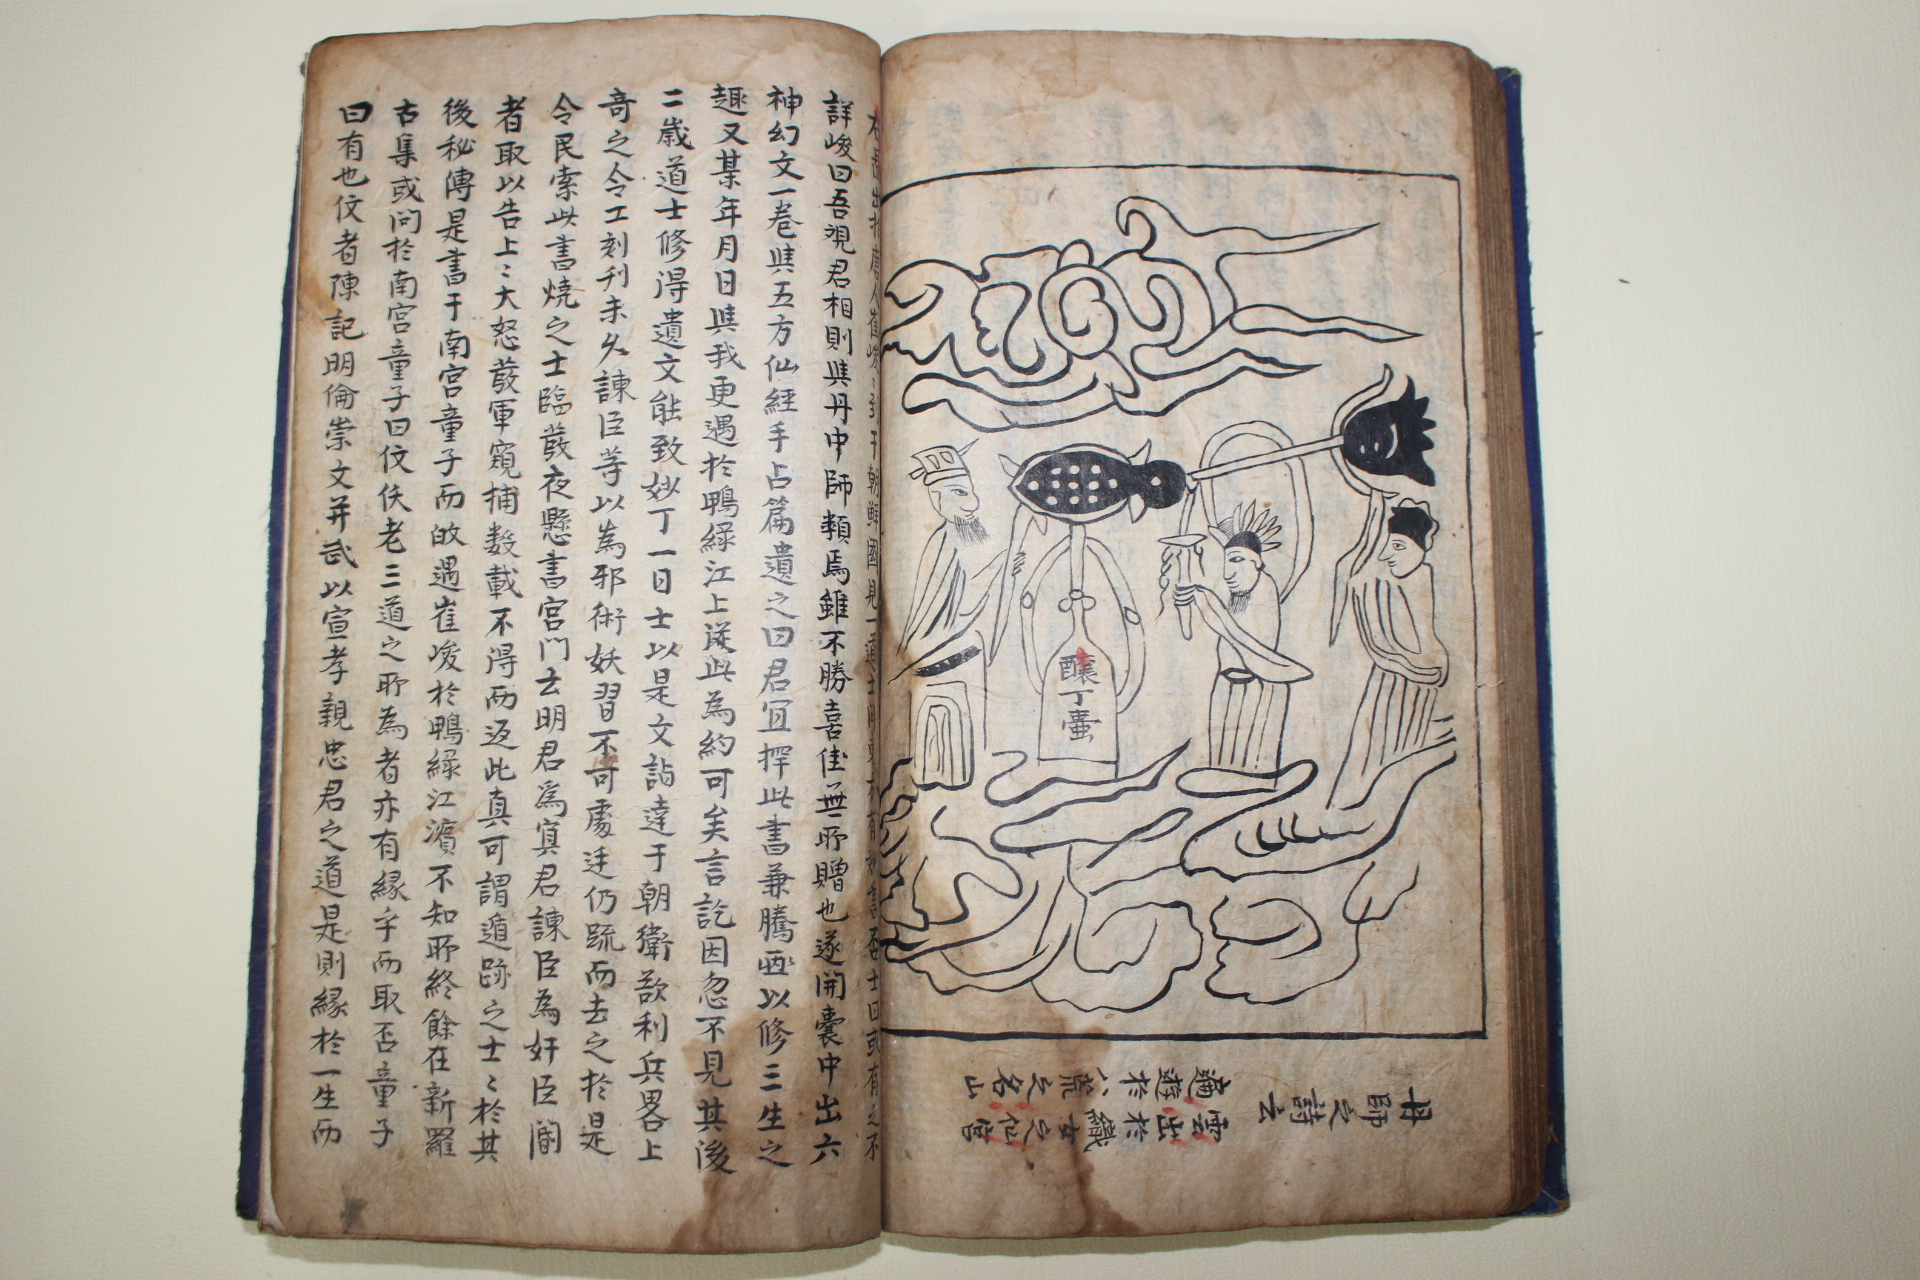 丹師之詩云
雲出於織女之仙宮
適遊於八荒之名山
釀丁壷
右
出於唐人崔峻
到于朝鮮國見一道士
有妙書否士曰或有之不
詳峻曰吾覌君相則與丹中師類焉雖不勝喜佳無所贈也遂開囊中出六
神幻文一卷與五方仙經手占篇遺之曰君宜擇此書兼騰
以修三生之
趣又某年月日與我更遇於鴨緑江上從此為約可矣言訖因忽不見其後
二歲道士修得遺文能致妙丁一日士以是文詣達于朝衛欲利兵畧上
奇之令工刻刋未久諫臣等以為邪術妖習不可處廷仍疏而去之於是
令民索此書燒之士臨發夜懸書宮門云明君爲寘君諫臣為奸臣閽
者取以告上〻大怒發軍窺捕数載不得而返此真可謂遁跡之士〻於其
後秘傳是書于南宮童子而
遇崔峻於鴨緑江濱不知所終餘在新羅
古集或問於南宮童子曰伩佚老三道之所為者亦有緣乎而取否童子
曰有也伩者陳記明倫崇文并武以宣孝親忠君之道是則緣於一生而